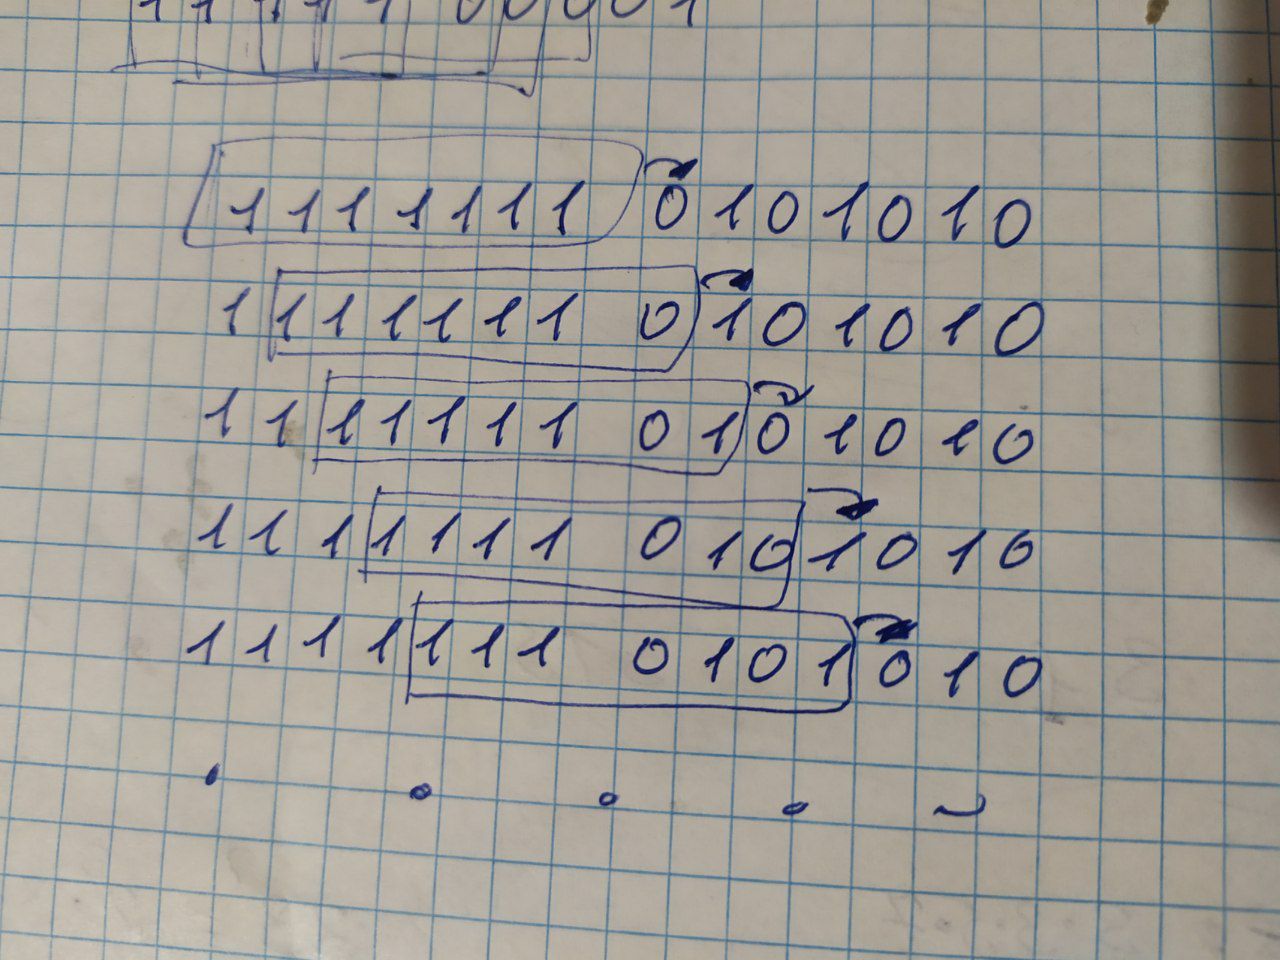 1 1 1 1 1 1 1 0 1 0 1 0 1 0
1 1 1 1 1 1 1 0 1 0 1 0 1 0
1 1 1 1 1 1 1 0 1 0 1 0 1 0
1 1 1 1 1 1 1 0 1 0 1 0 1 0
1 1 1 1 1 1 1 0 1 0 1 0 1 0